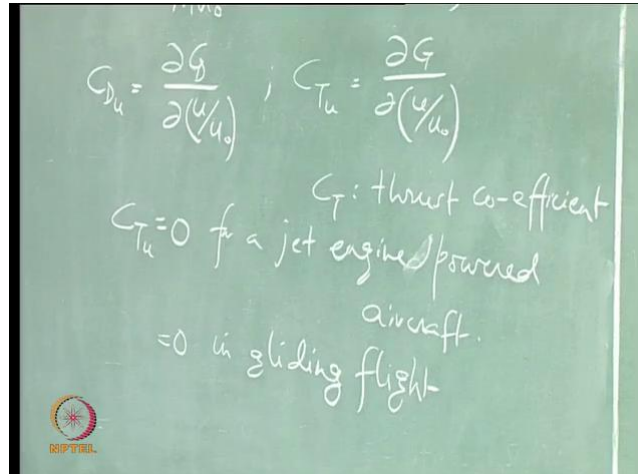 C_{D_u} = ∂C_D / ∂(u/u_0) ; C_{T_u} = ∂C_T / ∂(u/u_0)
C_T : thrust co-efficient
C_{T_u} = 0 for a jet engine/powered
aircraft.
= 0 in gliding flight
NPTEL